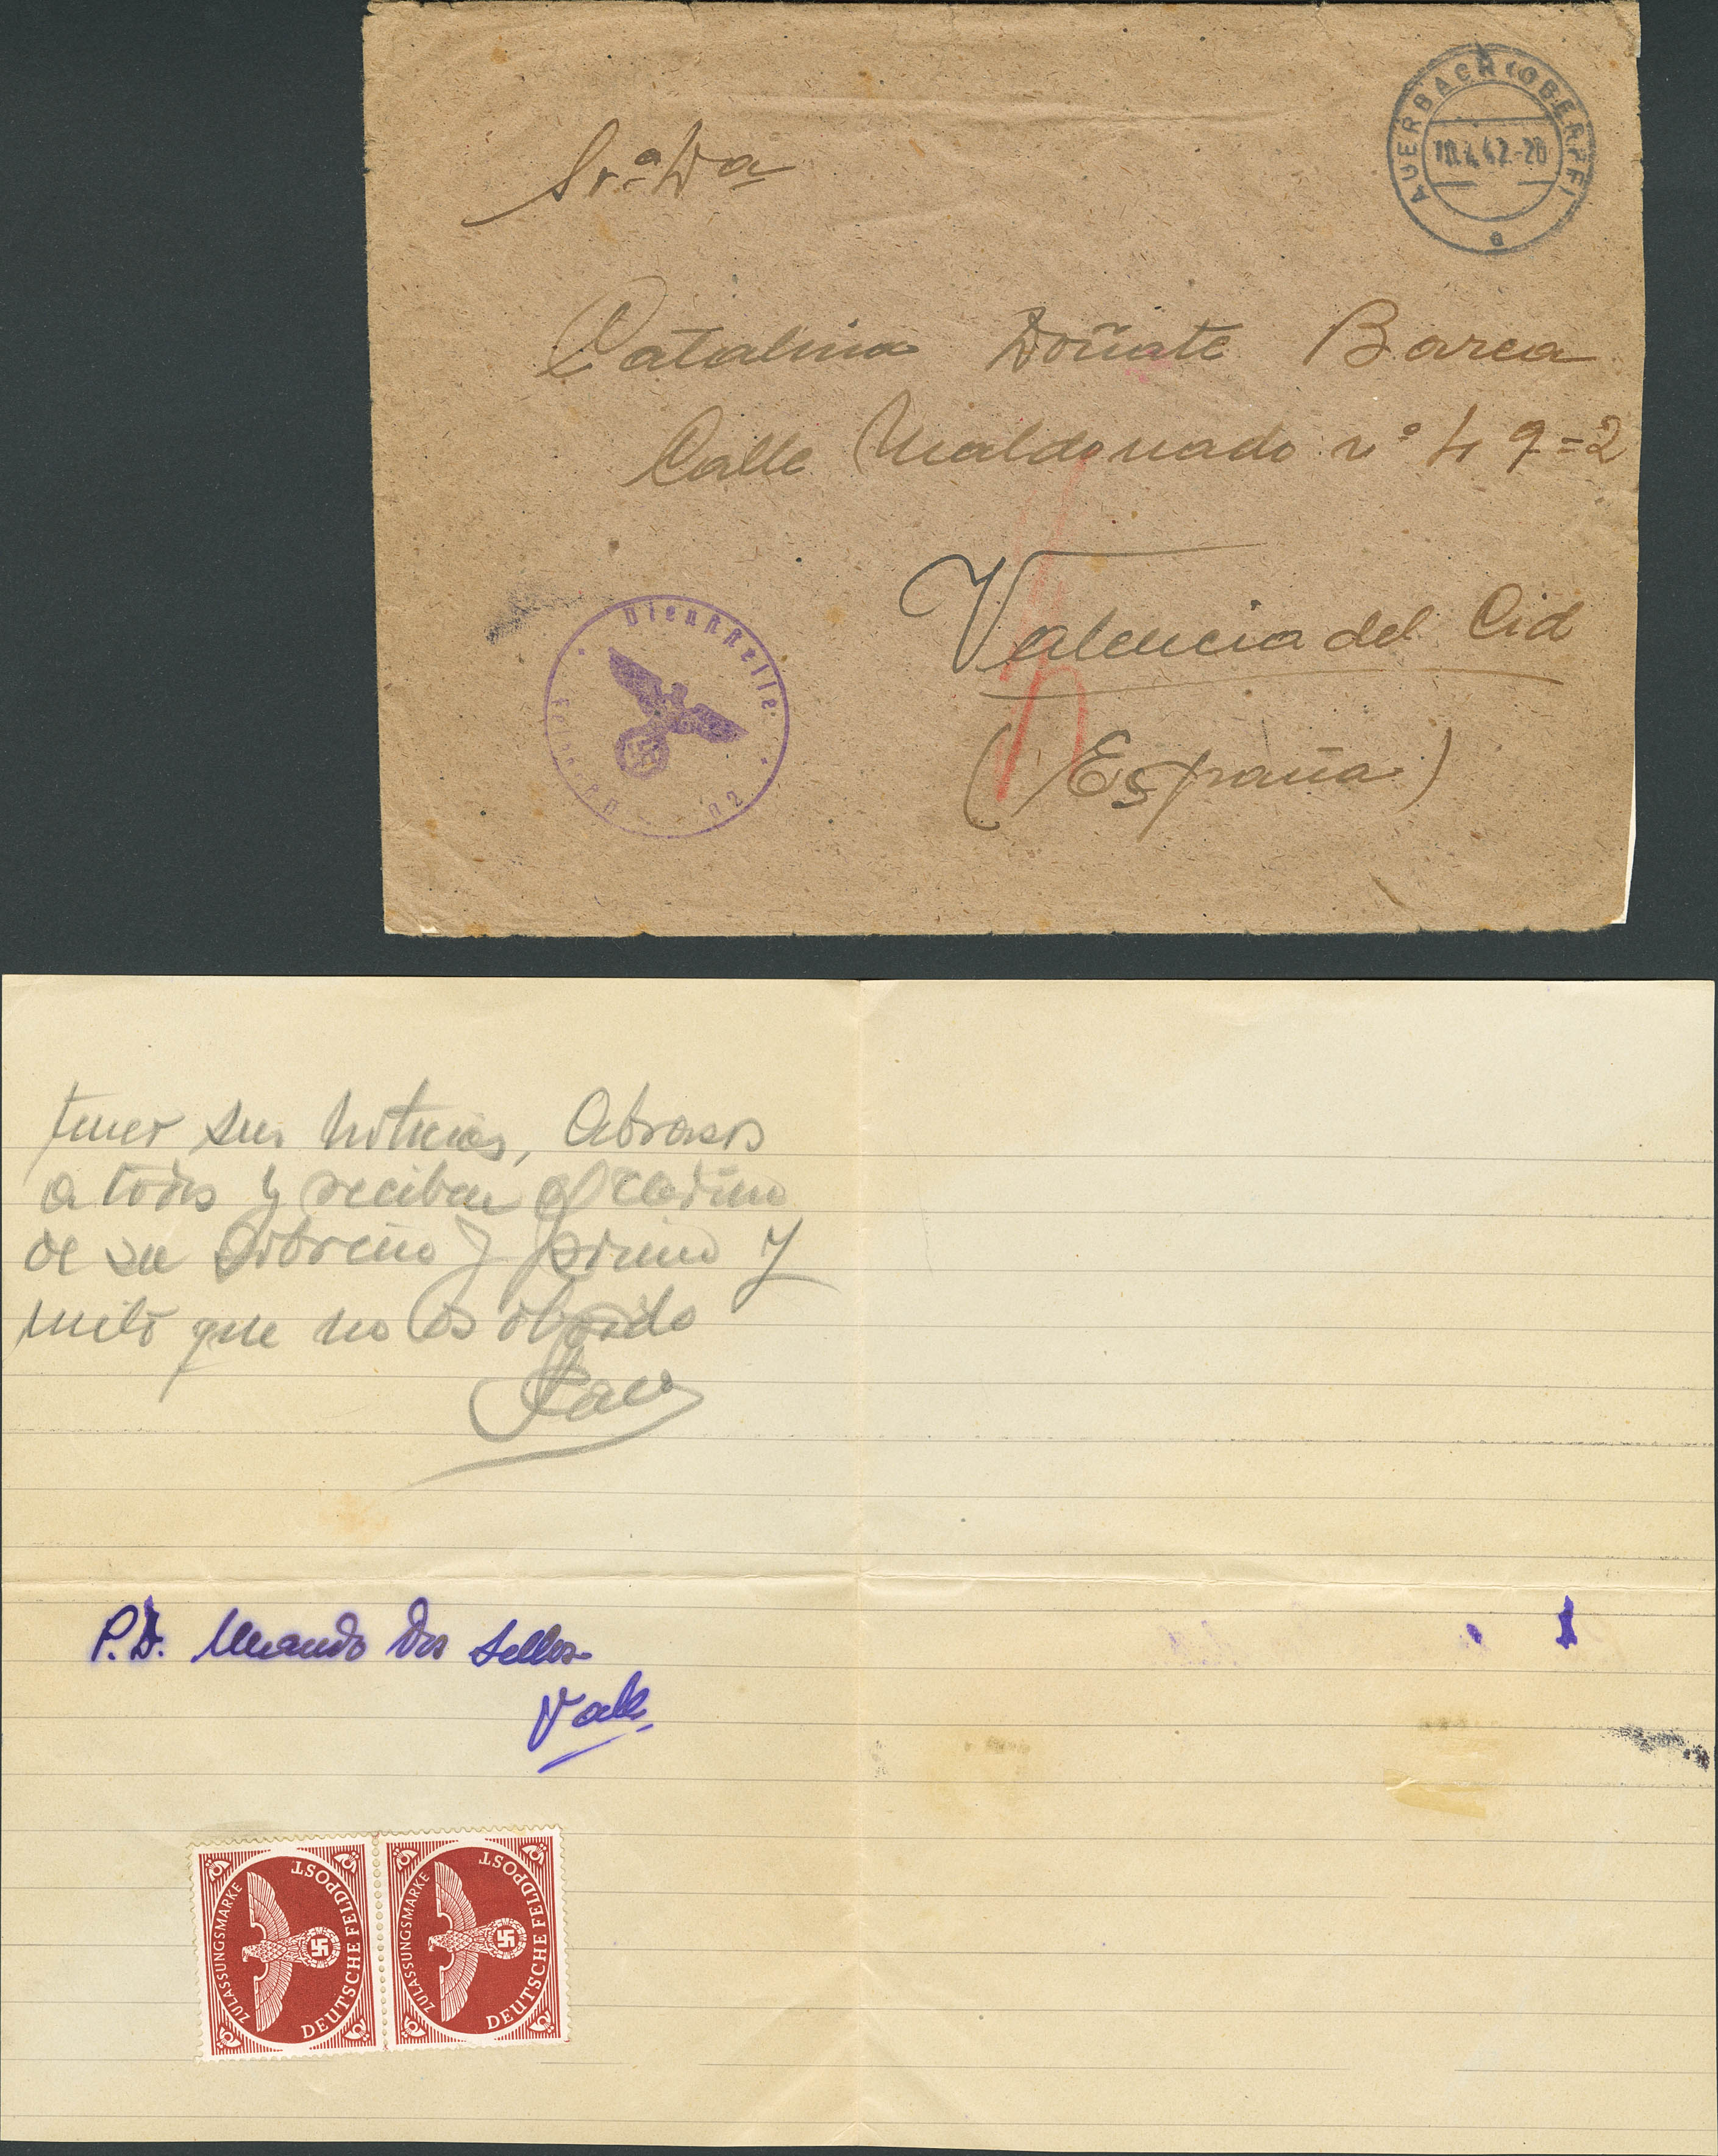 Sr.ª Dª
AUERBACH (OBERPF)
10.4.42.-20
a
Catalina Doñate Barea
Calle Maldonado nº 49=2
Valencia del Cid
(España)
Dienststelle
tener sus noticias, Abrazos
a todos y reciban el cariño
de su sobrino y primo y
nieto que no os olvida
P.D. Mando dos sellos-
Vale
ZULASSUNGSMARKE
DEUTSCHE FELDPOST
ZULASSUNGSMARKE
DEUTSCHE FELDPOST